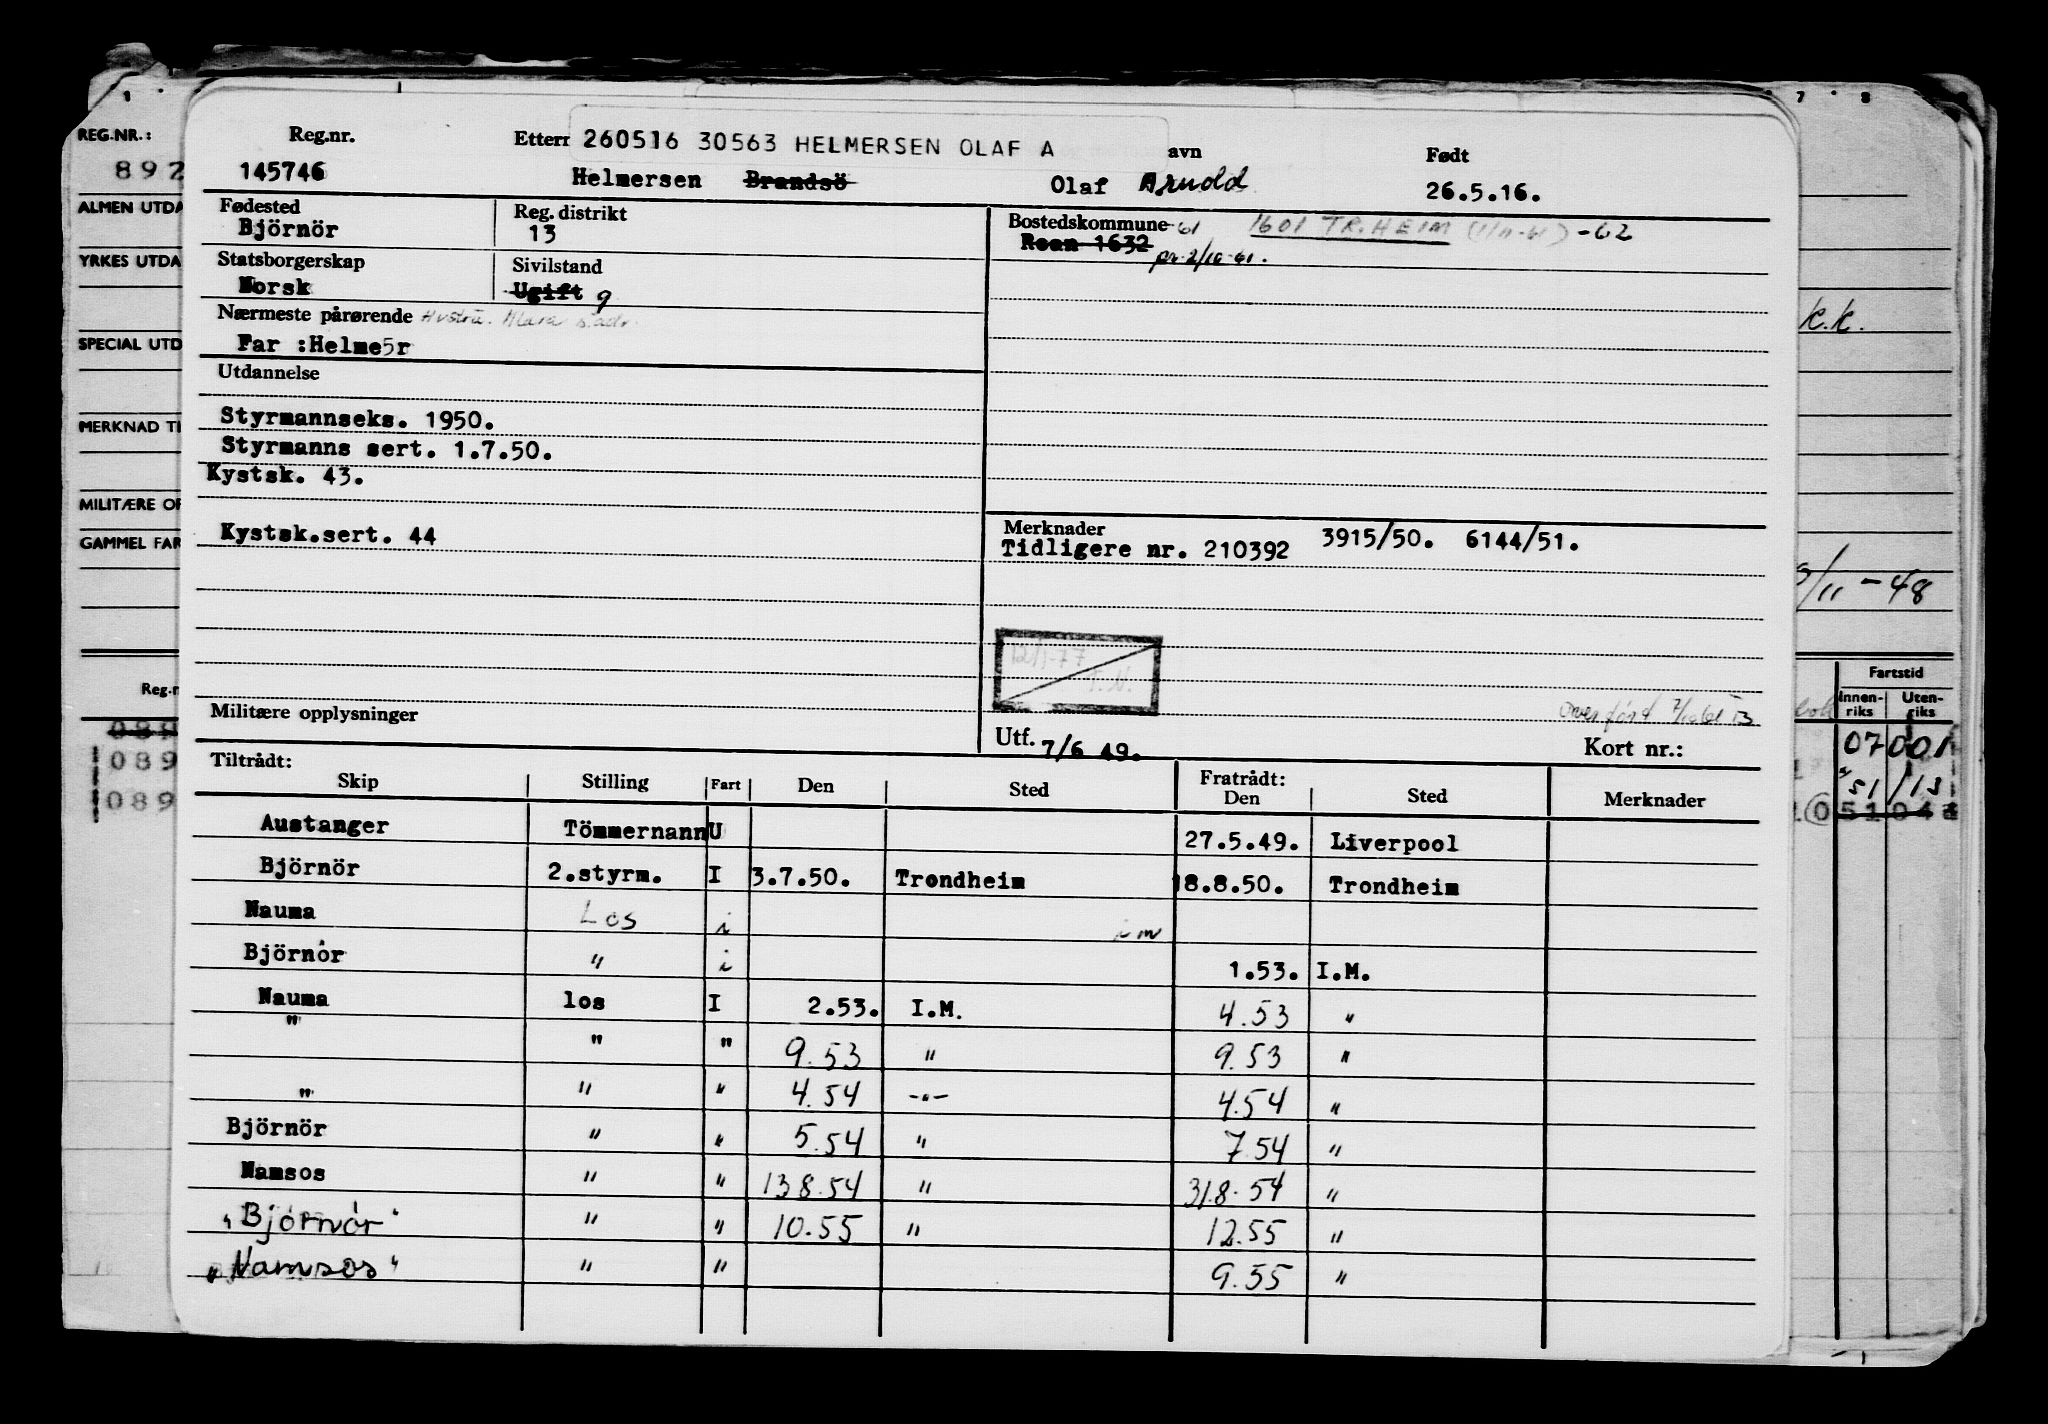 REG.NR.:
892
ALMEN UTDA
YRKES UTDA
SPECIAL UTD
MERKNAD TI
MILITÆRE OP
GAMMEL FAR
Reg.n
089
089
089
Reg.nr.
145746
Etterr 260516 30563 HELMERSEN OLAF A avn
Helmersen Brandsö Olaf Arnold
Født
26.5.16.
Fødested
Björnör
Reg. distrikt
13
Statsborgerskap
Norsk
Sivilstand
Ugift g
Nærmeste pårørende Hustru. Klara s.adr.
Far :Helme5r
Utdannelse
Styrmannseks. 1950.
Styrmanns sert. 1.7.50.
Kystsk. 43.
Kystsk.sert. 44
Militære opplysninger
Bostedskommune -61 1601 TR.HEIM (1/11-61) -62
Roan 1632 pr. 2/10-61.
Merknader
Tidligere nr. 210392 3915/50. 6144/51.
Utf. 7/6 49.
Kort nr.:
Tiltrådt:
Skip Stilling Fart Den Sted
Fratrådt:
Den Sted Merknader
Austanger Tömmernann U 27.5.49. Liverpool
Björnör 2.styrm. I 3.7.50. Trondheim 18.8.50. Trondheim
Nauma Los i i m
Björnör " i 1.53. I.M.
Nauma los I 2.53. I.M. 4.53 "
" " " 9.53 " 9.53 "
" " " 4.54 -"- 4.54 "
Björnör " " 5.54 " 7.54 "
Namsos " " 138.54 " 31.8.54 "
"Björnör" " " 10.55 " 12.55 "
"Namsos" " " 9.55 "
7 8
k.k.
/11 -48
Fartstid
Innen-
riks
Uten-
riks
07 001
51 / 13
051 048